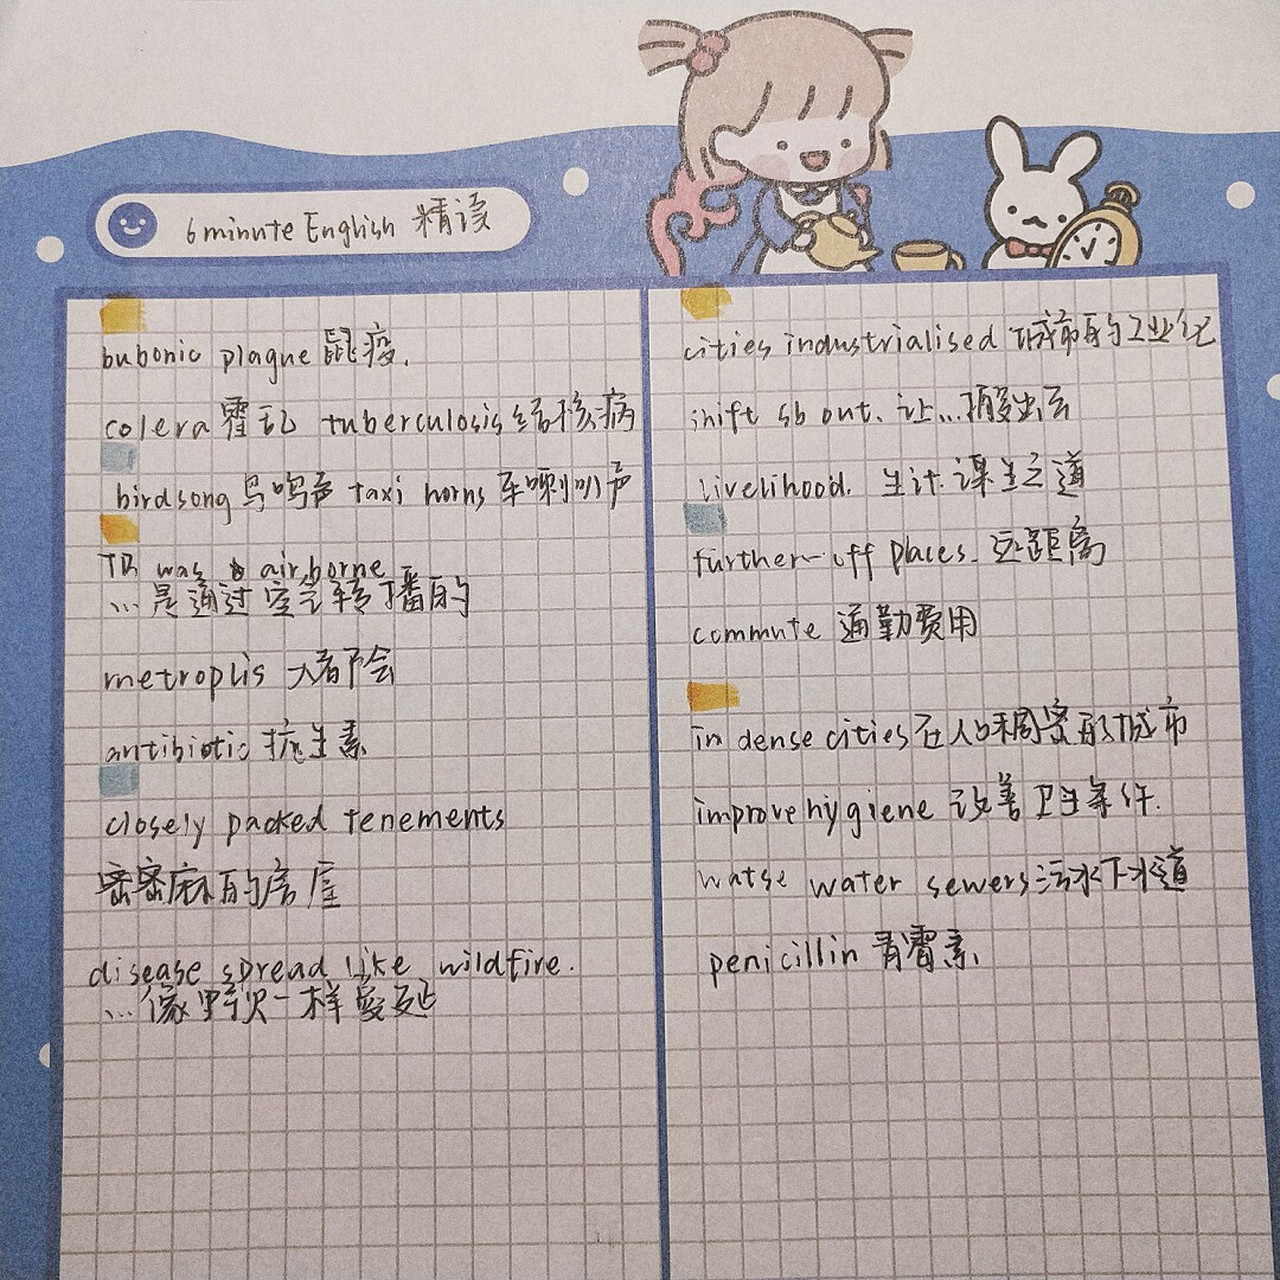 6 minute English 精读
bubonic plague 鼠疫.
colera 霍乱 tuberculosis 结核病
birdsong 鸟鸣声 taxi horns 车喇叭声
TB was airborne
...是通过空气转播的
metroplis 大都会
antibiotic 抗生素
closely packed tenements
密密麻麻的房屋
disease spread like wildfire.
...像野火一样蔓延
cities industrialised 城市的工业化
shift sb out. 让...搬出去
livelihood. 生计.谋生之道
further-off places. 远距离
commute 通勤费用
in dense cities 在人口稠密形城市
improve hygiene 改善卫生条件.
watse water sewers 污水下水道
penicillin 青霉素